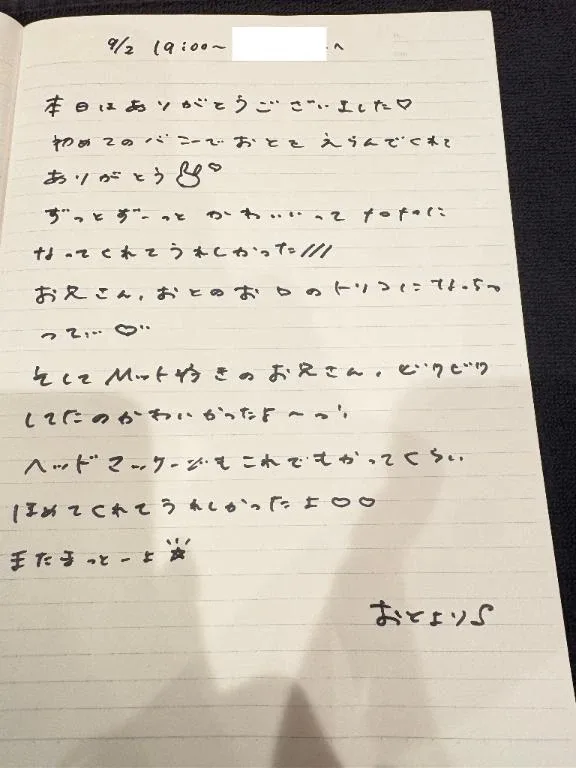 9/2 19:00〜 へ
本日はありがとうございました♡
初めてのバニーでおとをえらんでくれて
ありがとう
ずっとずーっと かわいいって メロメロに
なってくれてうれしかった///
お兄さん、おとのお口のトリコになっちゃ
って… ♡
そして M ット好きのお兄さん、ビクビク
してたのかわいかったよ〜っ!
ヘッドマッサージもこれでもかってくらい
ほめてくれてうれしかったよ♡♡
またきっとーよ☆
おとより♪